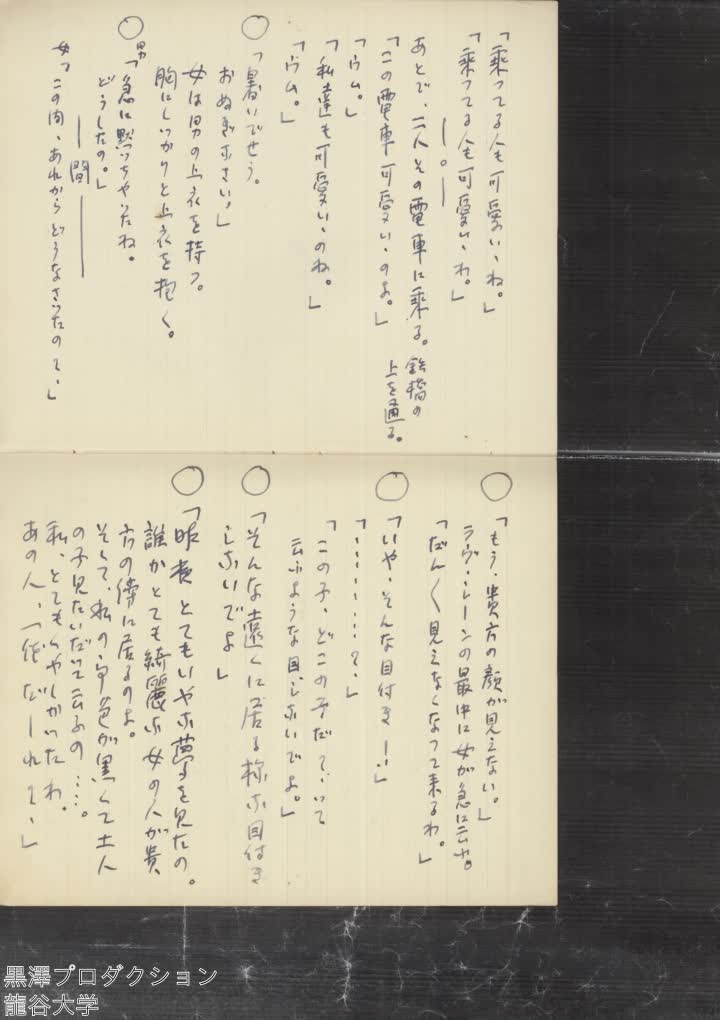 「乗ってる人も可愛いゝね。」
「乗ってる人も可愛いゝわ。」
―〇―
あとで、二人その電車に乗る。鉄橋の
上を通る。
「この電車可愛いゝのよ。」
「ウム。」
「私達も可愛いゝのね。」
「ウム。」
○「暑いでせう。
おぬぎなさい。」
女は男の上衣を持つ。
胸にしっかりと上衣を抱く。
○男「急に黙っちゃったね。
どうしたの。」
―間―
女「この間、あれからどうなさったのて、」
○「もう、貴方の顔が見えない。」
ラヴ・シーンの最中に女が急に云ふ。
「だん〱見えなくなって来るわ。」
○「いや、そんな目付き―」
「………?」
「この子、どこの子だて、いって
云ふような目しないでよ。」
○「そんな遠くに居る様な目付き
しないでよ」
○「昨夜とてもいやな夢を見たの。
誰かとても綺麗な女の人が貴
方の傍に居るのよ。
そして、私の事色が黒くて土人
の子見たいだって云ふの……。
私、とてもくやしかったわ。
あの人、一体だーれて、」
黒澤プロダクション
龍谷大学